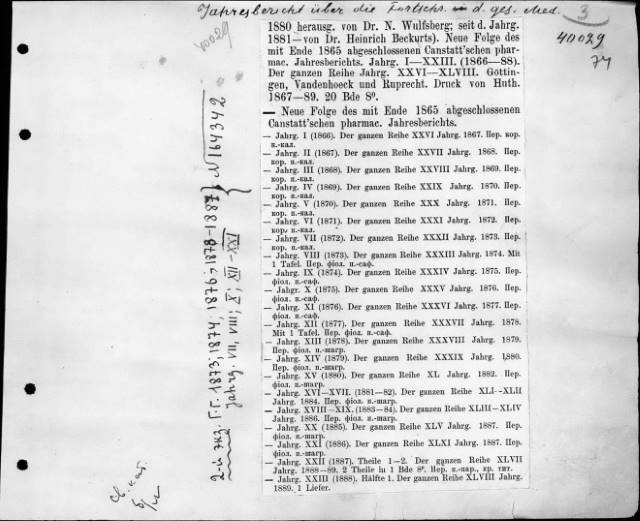 Jahresbericht über die Fortschr. in d. ges. Med.
3
40029
40029
74
1880 herausg. von Dr. N. Wulfsberg; seit d. Jahrg.
1881—von Dr. Heinrich Beckurts). Neue Folge des
mit Ende 1865 abgeschlossenen Canstatt'schen phar-
mac. Jahresberichts. Jahrg. I—XXIII. (1866—88).
Der ganzen Reihe Jahrg. XXVI—XLVIII. Gottin-
gen, Vandenhoeck und Ruprecht. Druck von Huth.
1867—89. 20 Bde 8⁰.
— Neue Folge des mit Ende 1865 abgeschlossenen
Canstatt'schen pharmac. Jahresberichts.
— Jahrg. I (1866). Der ganzen Reihe XXVI Jahrg. 1867. Пер. кор.
к.-кал.
— Jahrg. II (1867). Der ganzen Reihe XXVII Jahrg. 1868. Пер.
кор. к.-кал.
— Jahrg. III (1868). Der ganzen Reihe XXVIII Jahrg. 1869. Пер.
кор. к.-кал.
— Jahrg. IV (1869). Der ganzen Reihe XXIX Jahrg. 1870. Пер.
кор. к.-кал.
— Jahrg. V (1870). Der ganzen Reihe XXX Jahrg. 1871. Пер.
кор. к.-кал.
— Jahrg. VI (1871). Der ganzen Reihe XXXI Jahrg. 1872. Пер.
кор. к.-кал.
— Jahrg. VII (1872). Der ganzen Reihe XXXII Jahrg. 1873. Пер.
кор. к.-кал.
— Jahrg. VIII (1873). Der ganzen Reihe XXXIII Jahrg. 1874. Mit
1 Tafel. Пер. фіол. к.-саф.
— Jahrg. IX (1874). Der ganzen Reihe XXXIV Jahrg. 1875. Пер.
фіол. к.-саф.
— Jahgr. X (1875). Der ganzen Reihe XXXV Jahrg. 1876. Пер.
фіол. к.-саф.
— Jahrg. XI (1876). Der ganzen Reihe XXXVI Jahrg. 1877. Пер.
фіол. к.-саф.
— Jahrg. XII (1877). Der ganzen Reihe XXXVII Jahrg. 1878.
Mit 1 Tafel. Пер. фіол. к.-саф.
— Jahrg. XIII (1878). Der ganzen Reihe XXXVIII Jahrg. 1879.
Пер. фіол. к.-шагр.
— Jahrg. XIV (1879). Der ganzen Reihe XXXIX Jahrg. 1880.
Пер. фіол. к.-шагр.
— Jahrg. XV (1880). Der ganzen Reihe XL Jahrg. 1882. Пер.
фіол. к.-шагр.
— Jahrg. XVI—XVII. (1881—82). Der ganzen Reihe XLI—XLII
Jahrg. 1884. Пер. фіол. к.-шагр.
— Jahrg. XVIII—XIX. (1883—84). Der ganzen Reihe XLIII—XLIV
Jahrg. 1886. Пер. фіол. к.-шагр.
— Jahrg. XX (1885). Der ganzen Reihe XLV Jahrg. 1887. Пер.
фіол. к.-шагр.
— Jahrg. XXI (1886). Der ganzen Reihe XLXI Jahrg. 1887. Пер.
фіол. к.-шагр.
— Jahrg. XXII (1887). Theile 1—2. Der ganzen Reihe XLVII
Jahrg. 1888—89. 2 Theile in 1 Bde 8⁰. Пер. к.-кар., кр. тит.
— Jahrg. XXIII (1888). Hälfte 1. Der ganzen Reihe XLVIII Jahrg.
1889. 1 Liefer.
2-й экз. Г.г. 1873, 1874, 1876, 1878-1887 } № 164342
Jahrg. VII, VIII; X; XII - XXI